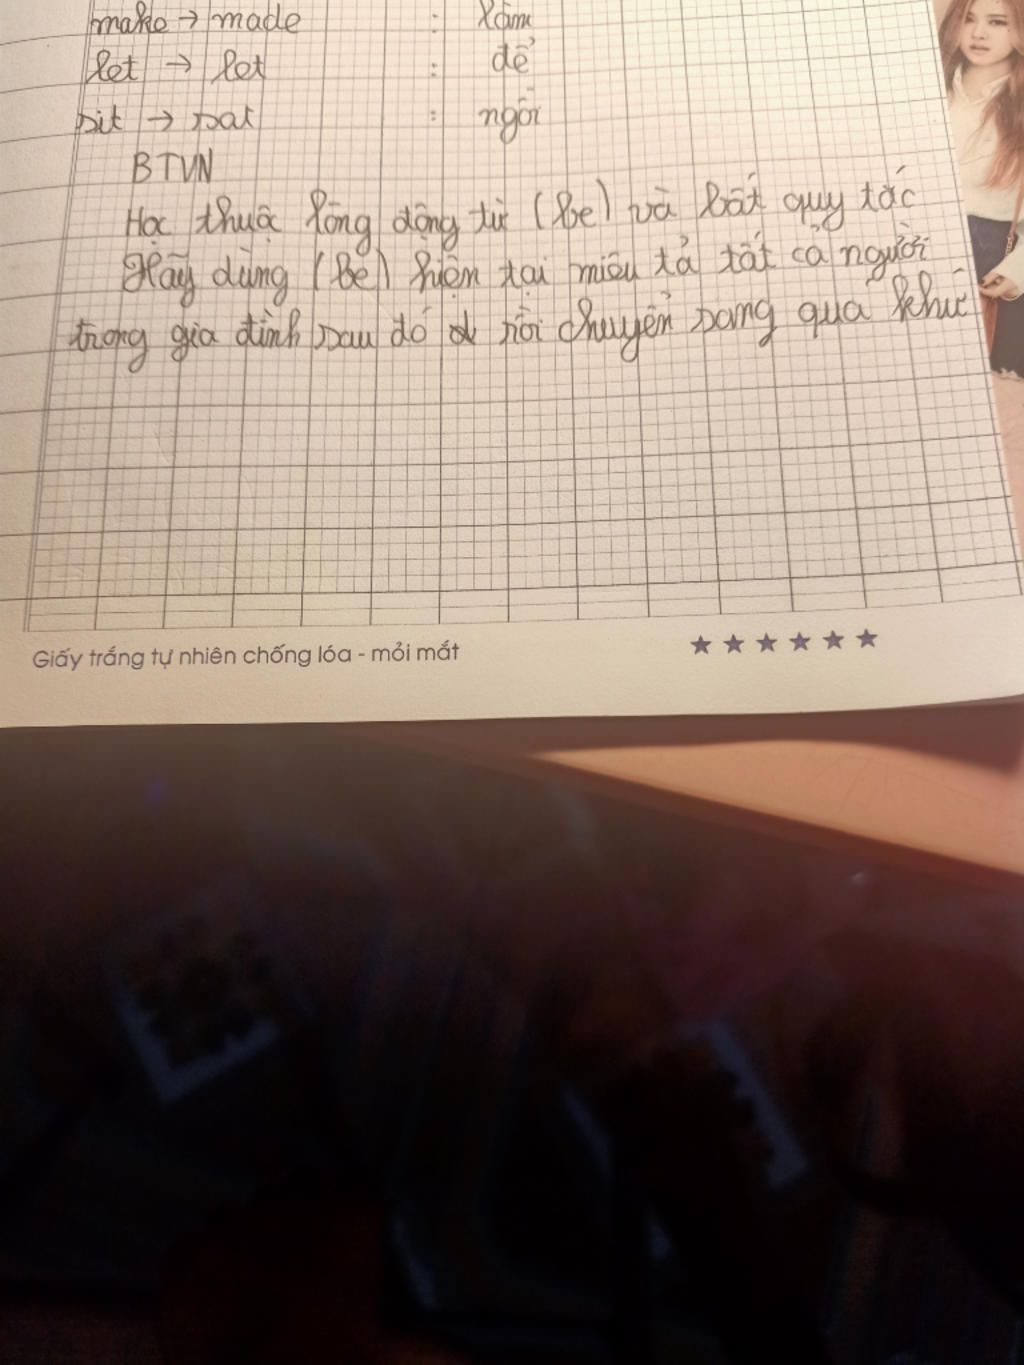 make → made : làm
let → let : để
sit → sat : ngồi
BTVN
Học thuộ lòng động từ (be) và bất quy tắc
Hãy dùng (be) hiện tại miêu tả tất cả người
trong gia đình sau đó rồi chuyển sang quá khứ
Giấy trắng tự nhiên chống lóa - mỏi mắt